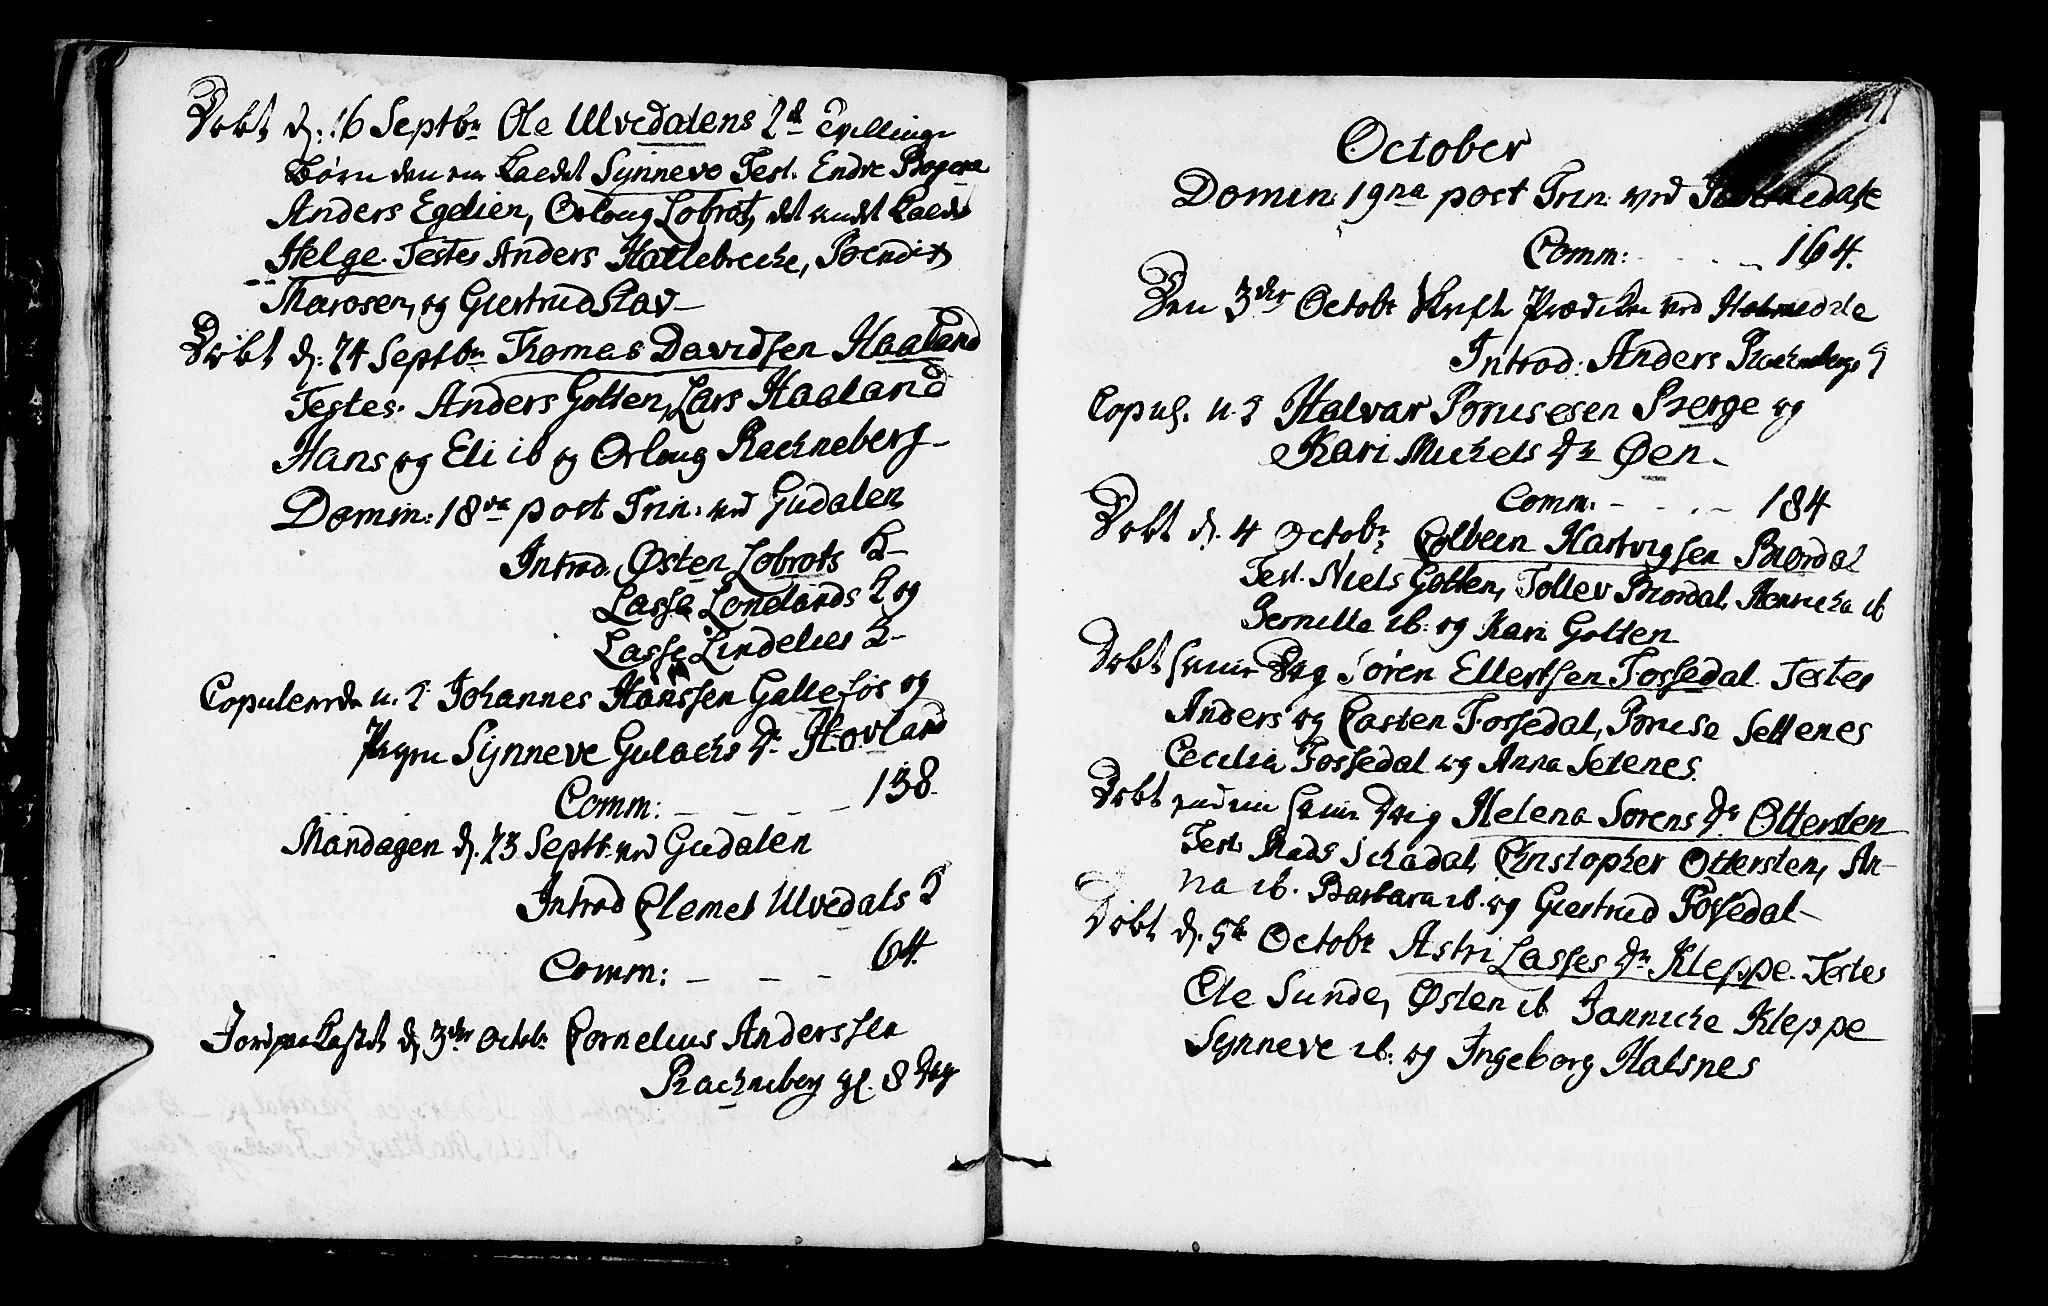 Døbt d. 16 Septbr Ole Ulvedalens 2de Tvillinge
Børn den ene kaldet Synneve Test. Endre
Anders Egelien, Orloug Lobrot, det andet kaldt
Helge. Testes Anders Hatlebrecke, Bendix
Marosen, og Giertrud Slav
Døbt d. 24 Septbr Thomas Davidsen Haaland
Testes. Anders Gotten, Lars Haaland
Hans og Eli ib og Orloug Rachneberg
Domin: 18va post Trin: ved Gudalen
Introd. Østen Lobrots K
Lasse Lonelands K og
Lasse Lindelies K
Copulerede u. K Johannes Hanssen Gallefos og
Pigen Synneve Gulachs Dr Hovland
Comm: - - - - 138.
Mandagen d. 23 Septbr ved Gudalen
Introd Clemet Ulvedals K
Comm: - - - 64.
Jordpaakastet d. 3die Octobr Cornelius Anderssen
Rachneberg gl. 8 Dag
11
October
Domin: 19na post Trin: ved Holmedahl
Comm: - - - 164.
Den 3die Octobr Skrift Prædiken ved Holmedale
Introd: Anders Rachnebergs K
Copul. u. K Halvar Brusesen Berge og
Kari Michels Dr Øen.
Comm: - - - 184
Døbt d. 4 Octobr Colbeen Hartvigsen Bordal
Test. Niels Gotten, Tollev Bordal, Henricha ib
Pernilla ib: og Kari Gotten
Døbt samme Dag Søren Ellertsen Fossedal Testes
Anders og Casten Fossedal, Bruse Settenes
Cecilia Fossedal og Anna Setenes.
Døbt endnu samme Dag Helena Sørens Dr Ottersten
Test. Mads Schadal, Christopher Ottersten, An-
na ib. Barbara ib. og Giertrud Fossedal
Døbt d. 5te Octobr Astri Lasses Dr Kleppe. Testes
Ole Sunde, Østen ib Jannicke Kleppe
Synneve ib: og Ingeborg Halsnes